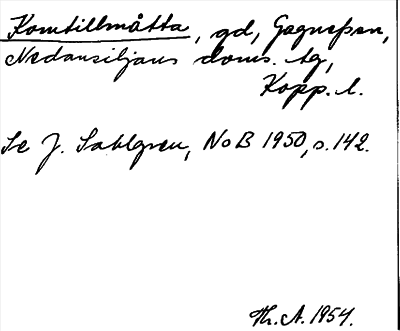 Komtillmåtta, gd, Gagnefsn,
Nedansiljans doms. tg,
Kopp. l.
Se J. Sahlgren, NoB 1950, s. 142.
Th. A. 1954.